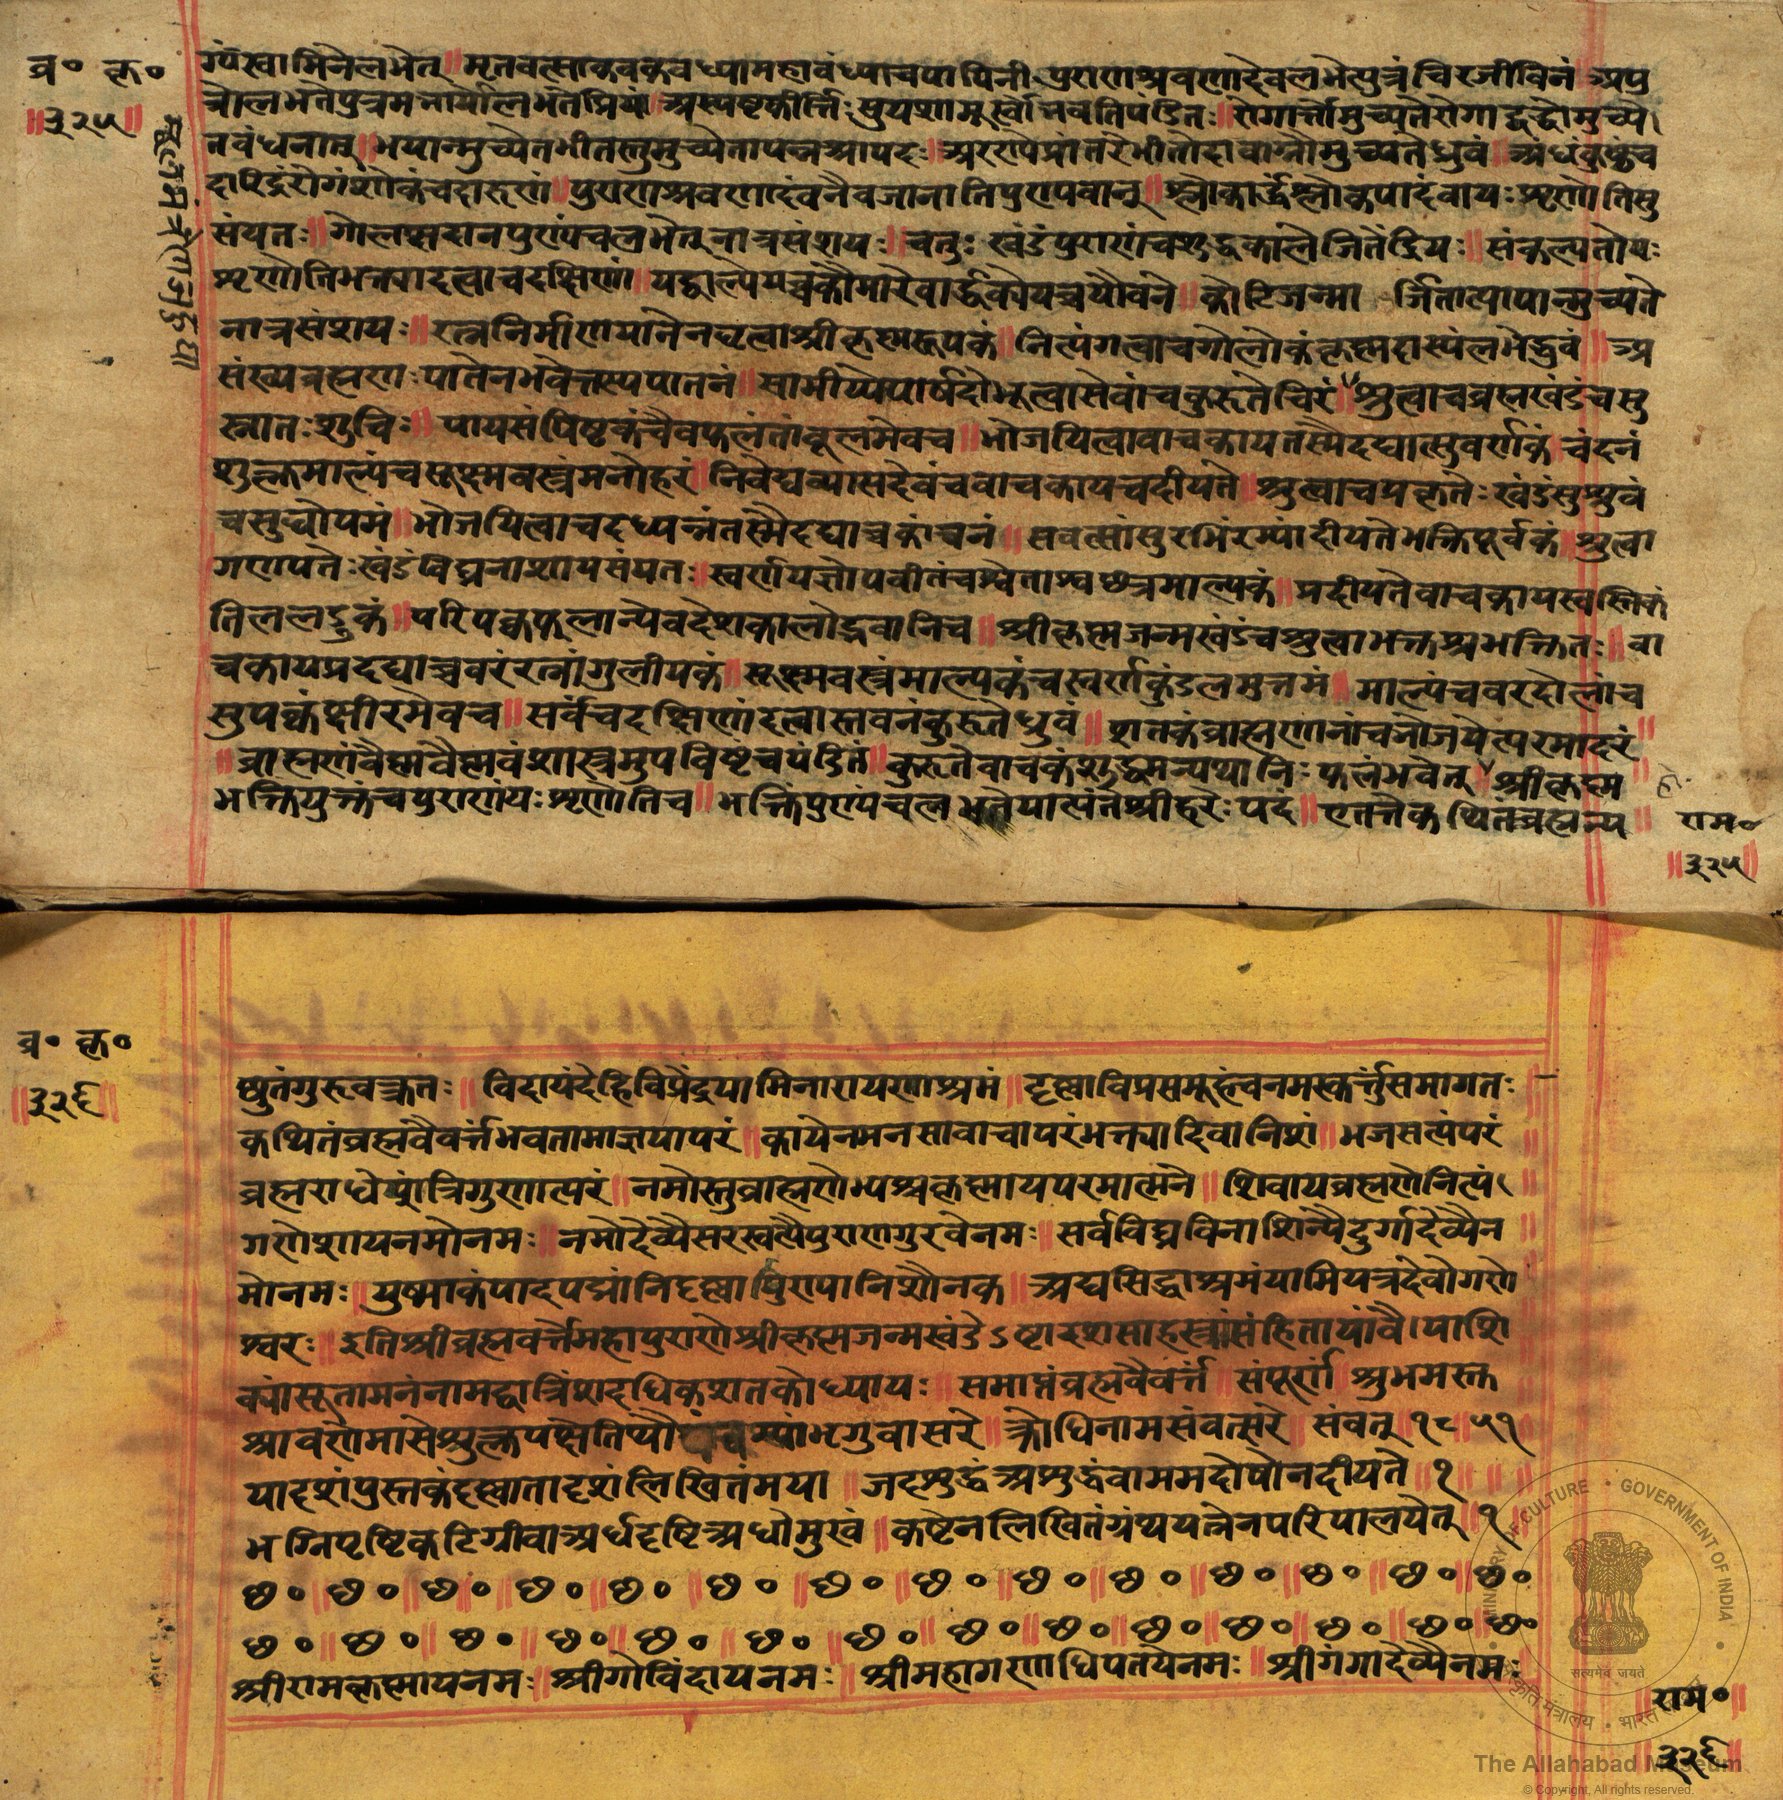 ब्र॰ कृ॰
॥३२५॥
ग्यंस्वामिनैलभेत् ॥ मृतवत्साकाकवंध्यामहावंध्याचपापिनी पुराणश्रवणादेवलभेत्पुत्रंचिरजीविनं अपु
त्रोलभतेपुत्रमभार्योलभतेप्रियां ॥ अस्पष्टकीर्त्तिः सुयशामूर्खोभवतिपंडितः ॥ रोगार्त्तोमुच्यतेरोगाद्बद्धोमुच्ये
तबंधनात् ॥ भयान्मुच्येतभीतस्तुमुच्येतापन्नआपदः ॥ अरण्येप्रांतरेभीतोदावाग्नौमुच्यतेध्रुवं ॥ अंधंकुष्ठंच
दारिद्रंरोगंशोकंचदारुणं ॥ पुराणश्रवणादेवनैवजानातिपुण्यवान् ॥ श्लोकार्द्धंश्लोकपादंवायः शृणोतिसु
संयतः ॥ गोलक्षदानपुण्यंचलभेत्नात्रसंशयः ॥ चतुः खंडंपुराणंचशुद्धकालेजितेंद्रियः ॥ संकल्पतोयः
शृणोतिभक्त्यादत्वाचदक्षिणां ॥ यद्बाल्येयच्चकौमारेवार्द्धकेयच्चयौवने ॥ कोटिजन्मा र्जितात्पापान्मुच्यते
नात्रसंशयः ॥ रत्ननिर्माणयानेनधृत्वाश्रीकृष्णरूपकं ॥ नित्यंगत्वाचगोलोकंकृष्णदास्यंलभेद्ध्रुवं ॥ अ
संख्यब्रह्मणः पातेनभवेत्तस्यपातनं ॥ सामीप्येपार्षदोभूत्वासेवांचकुरुतेचिरं ॥ श्रुत्वाचब्रह्मखंडंचसु
स्नातः शुचिः ॥ पायसंपिष्टकंचैवफलंतांबूलमेवच ॥ भोजयित्वावाचकायतस्मैदद्यात्सुवर्णकं ॥ चंदनं
शुक्लमाल्यंचसूक्ष्मवस्त्रंमनोहरं ॥ निवेद्यव्यासदेवंचवाचकायचदीयते ॥ श्रुत्वाचप्रकृतेः खंडंसुश्रुवं
चसुधोपमं ॥ भोजयित्वाचदध्यन्नंतस्मैदद्याच्चकांचनं ॥ सवत्सांसुरभिंरम्यांदीयतेभक्तिपूर्वकं ॥ श्रुत्वा
गणपतेः खंडंविघ्ननाशायसंयतः ॥ स्वर्णयज्ञोपवीतंचश्वेताश्वछत्रमाल्यकं ॥ प्रदीयतेवाचकायस्वस्तिकं
तिललड्डुकं ॥ परिपक्वफलान्येवदेशकालोद्भवानिच ॥ श्रीकृष्णजन्मखंडंचश्रुत्वाभक्तश्चभक्तितः ॥ वा
चकायप्रदद्याच्चवरंरत्नांगुलीयकं ॥ सूक्ष्मवस्त्रंमाल्यकंचस्वर्णकुंडलमुत्तमं ॥ माल्यंचवरदोलांच
सुपक्वंक्षीरमेवच ॥ सर्वंचदक्षिणांदत्वास्तवनंकुरुतेध्रुवं ॥ शतकंब्राह्मणानांचभोजयेत्परमादरं ॥
॥ ब्राह्मणंवैष्णवंवैष्णवंशास्त्रमुपविष्टंचपंडितं ॥ कुरुतेवाचकंशुद्धमन्यथानिः फलंभवेत् ॥ श्रीकृष्ण
भक्तियुक्तंचपुराणंयः शृणोतिच ॥ भक्तिंपुण्यंचलभतेयात्यंतेश्रीहरेः पदं ॥ एतत्तेकथितंब्रह्मन्य ॥
राम॰
॥३२५॥
ब्र॰ कृ॰
॥३२६॥
च्छ्रुतंगुरुवक्त्रतः ॥ विदायंदेहिविप्रेंद्रयामिनारायणाश्रमं ॥ दृष्ट्वाविप्रसमूहंचनमस्कर्त्तुंसमागतः
कथितंब्रह्मवैवर्त्तंभवतामाज्ञयापरं ॥ कायेनमनसावाचापरंभक्त्यादिवानिशं ॥ भजसत्यंपरं
ब्रह्मराधेशंत्रिगुणात्परं ॥ नमोस्तुब्राह्मणेभ्यश्चकृष्णायपरमात्मने ॥ शिवायब्रह्मणेनित्यं
गणेशायनमोनमः ॥ नमोदेव्यैसरस्वत्यैपुराणगुरवेनमः ॥ सर्वविघ्नविनाशिन्यैदुर्गादेव्यैन
मोनमः ॥ युष्माकंपादपद्मांनिदृष्ट्वापुण्यानिशौनक ॥ अद्यसिद्धाश्रमंयामियत्रदेवोगणे
श्वरः ॥ इतिश्रीब्रह्मवर्त्तेमहापुराणेश्रीकृष्णजन्मखंडेऽष्टादशसाहस्त्र्यांसंहितायांवै।याशि
क्यांसूतागमनंनामद्वात्रिंशदधिकशतकोध्यायः ॥ समाप्तंब्रह्मवैवर्त्तं ॥ संपूर्णं ॥ शुभमस्तु
श्रावणेमासेशुक्लपक्षेतिथौ भृगुवासरे ॥ क्रोधिनामसंवत्सरे ॥ संवत् १८५१
यादृशंपुस्तकंदृष्ट्वातादृशंलिखितंमया ॥ जदशुद्धंअशुद्धंवाममदोषोनदीयते ॥ १ ॥
भग्निपृष्टिकटिग्रीवाअर्धदृष्टिअधोमुखं ॥ कष्टेनलिखितंग्रंथयत्नेनपरिपालयेत् ॥ १
छ॰ ॥ छ॰ ॥ छ॰ ॥ छ॰ ॥ छ॰ ॥ छ॰ ॥ छ॰ ॥ छ॰ ॥ छ॰ ॥ छ॰ ॥ छ॰ ॥ छ॰ ॥ छ॰ ॥ छ॰
छ॰ ॥ छ॰ ॥ छ॰ ॥ छ॰ ॥ छ॰ ॥ छ॰ ॥ छ॰ ॥ छ॰ ॥ छ॰ ॥ छ॰ ॥ छ॰ ॥ छ॰ ॥ छ॰ ॥ छ॰
श्रीरामकृष्णायनमः ॥ श्रीगोविंदायनमः ॥ श्रीमहागणाधिपतयेनमः ॥ श्रीगंगादेव्यैनमः
॥राम॰॥
॥३२६॥
MINISTRY OF CULTURE • GOVERNMENT OF INDIA
सत्यमेव जयते
संस्कृति मंत्रालय • भारत
The Allahabad Museum
© Copyright, All rights reserved.